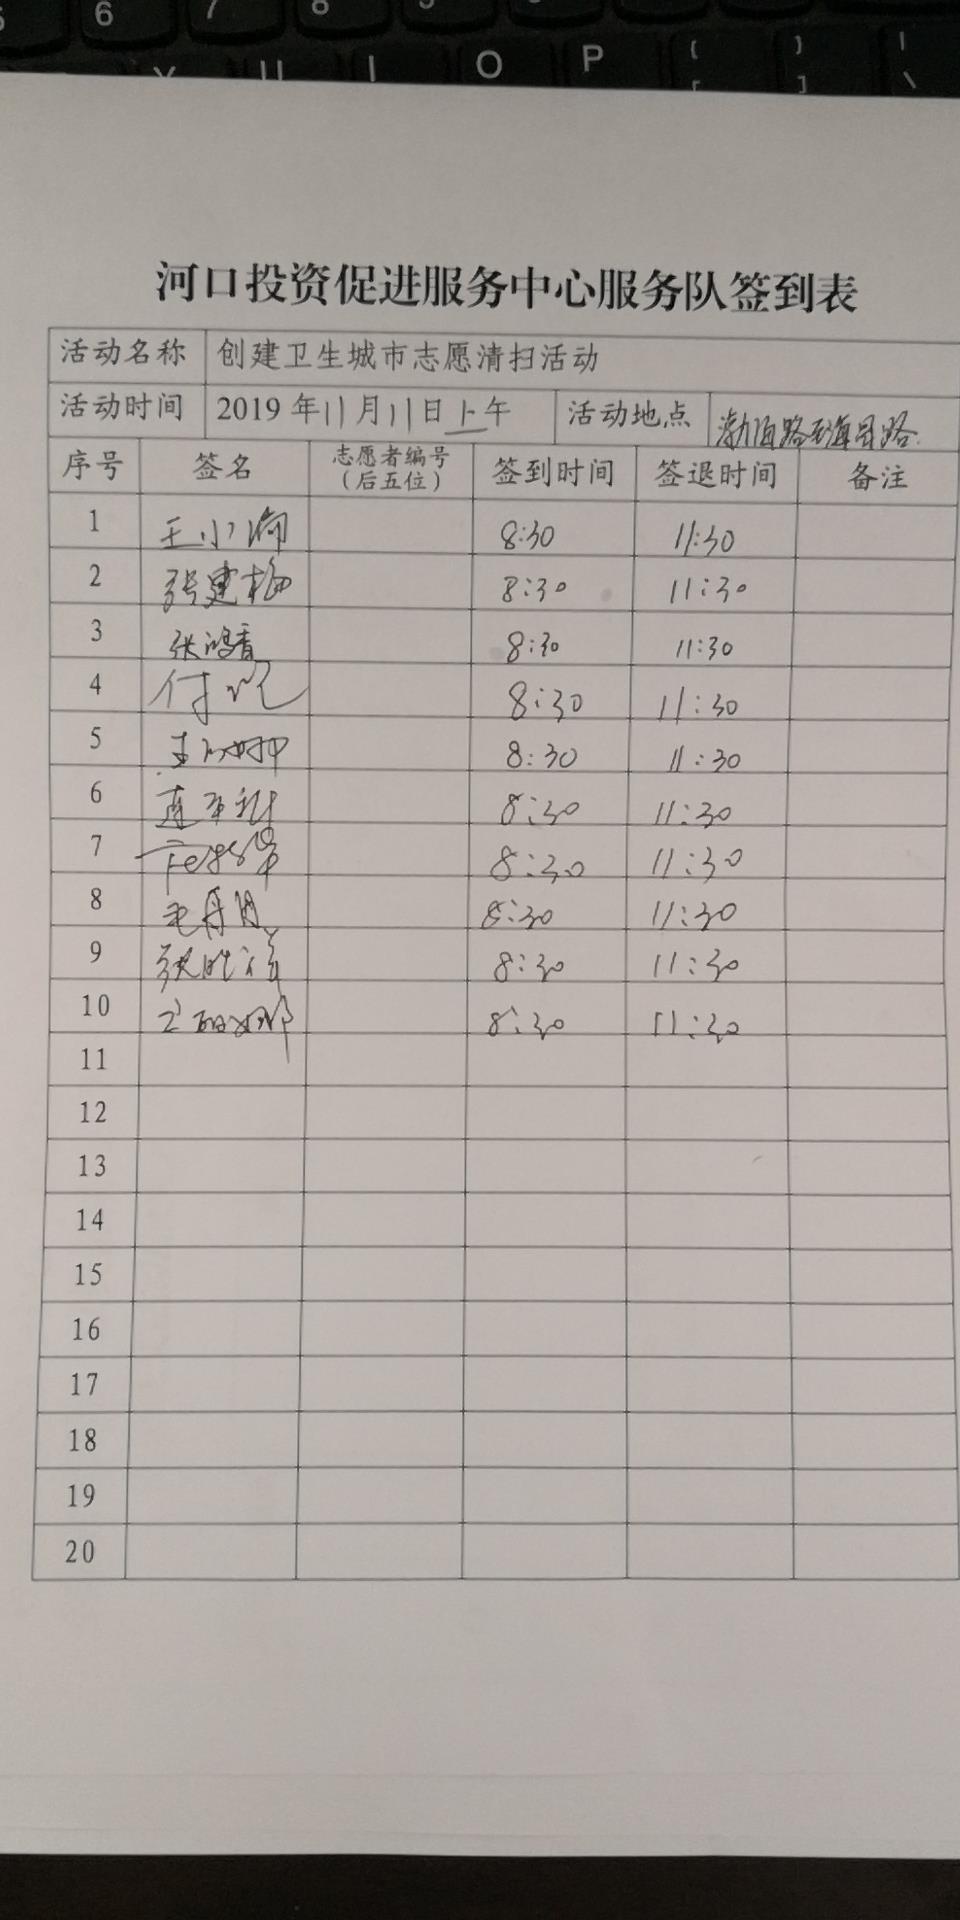 6 7 8 9
Y U I O P [ ] \
河口投资促进服务中心服务队签到表
活动名称 创建卫生城市志愿清扫活动
活动时间 2019年11月11日上午 活动地点
序号 签名 志愿者编号(后五位) 签到时间 签退时间 备注
1 王小海 8:30 11:30
2 张建梅 8:30 11:30
3 张鸿香 8:30 11:30
4 8:30 11:30
5 8:30 11:30
6 8:30 11:30
7 8:30 11:30
8 8:30 11:30
9 8:30 11:30
10 8:30 11:30
11
12
13
14
15
16
17
18
19
20